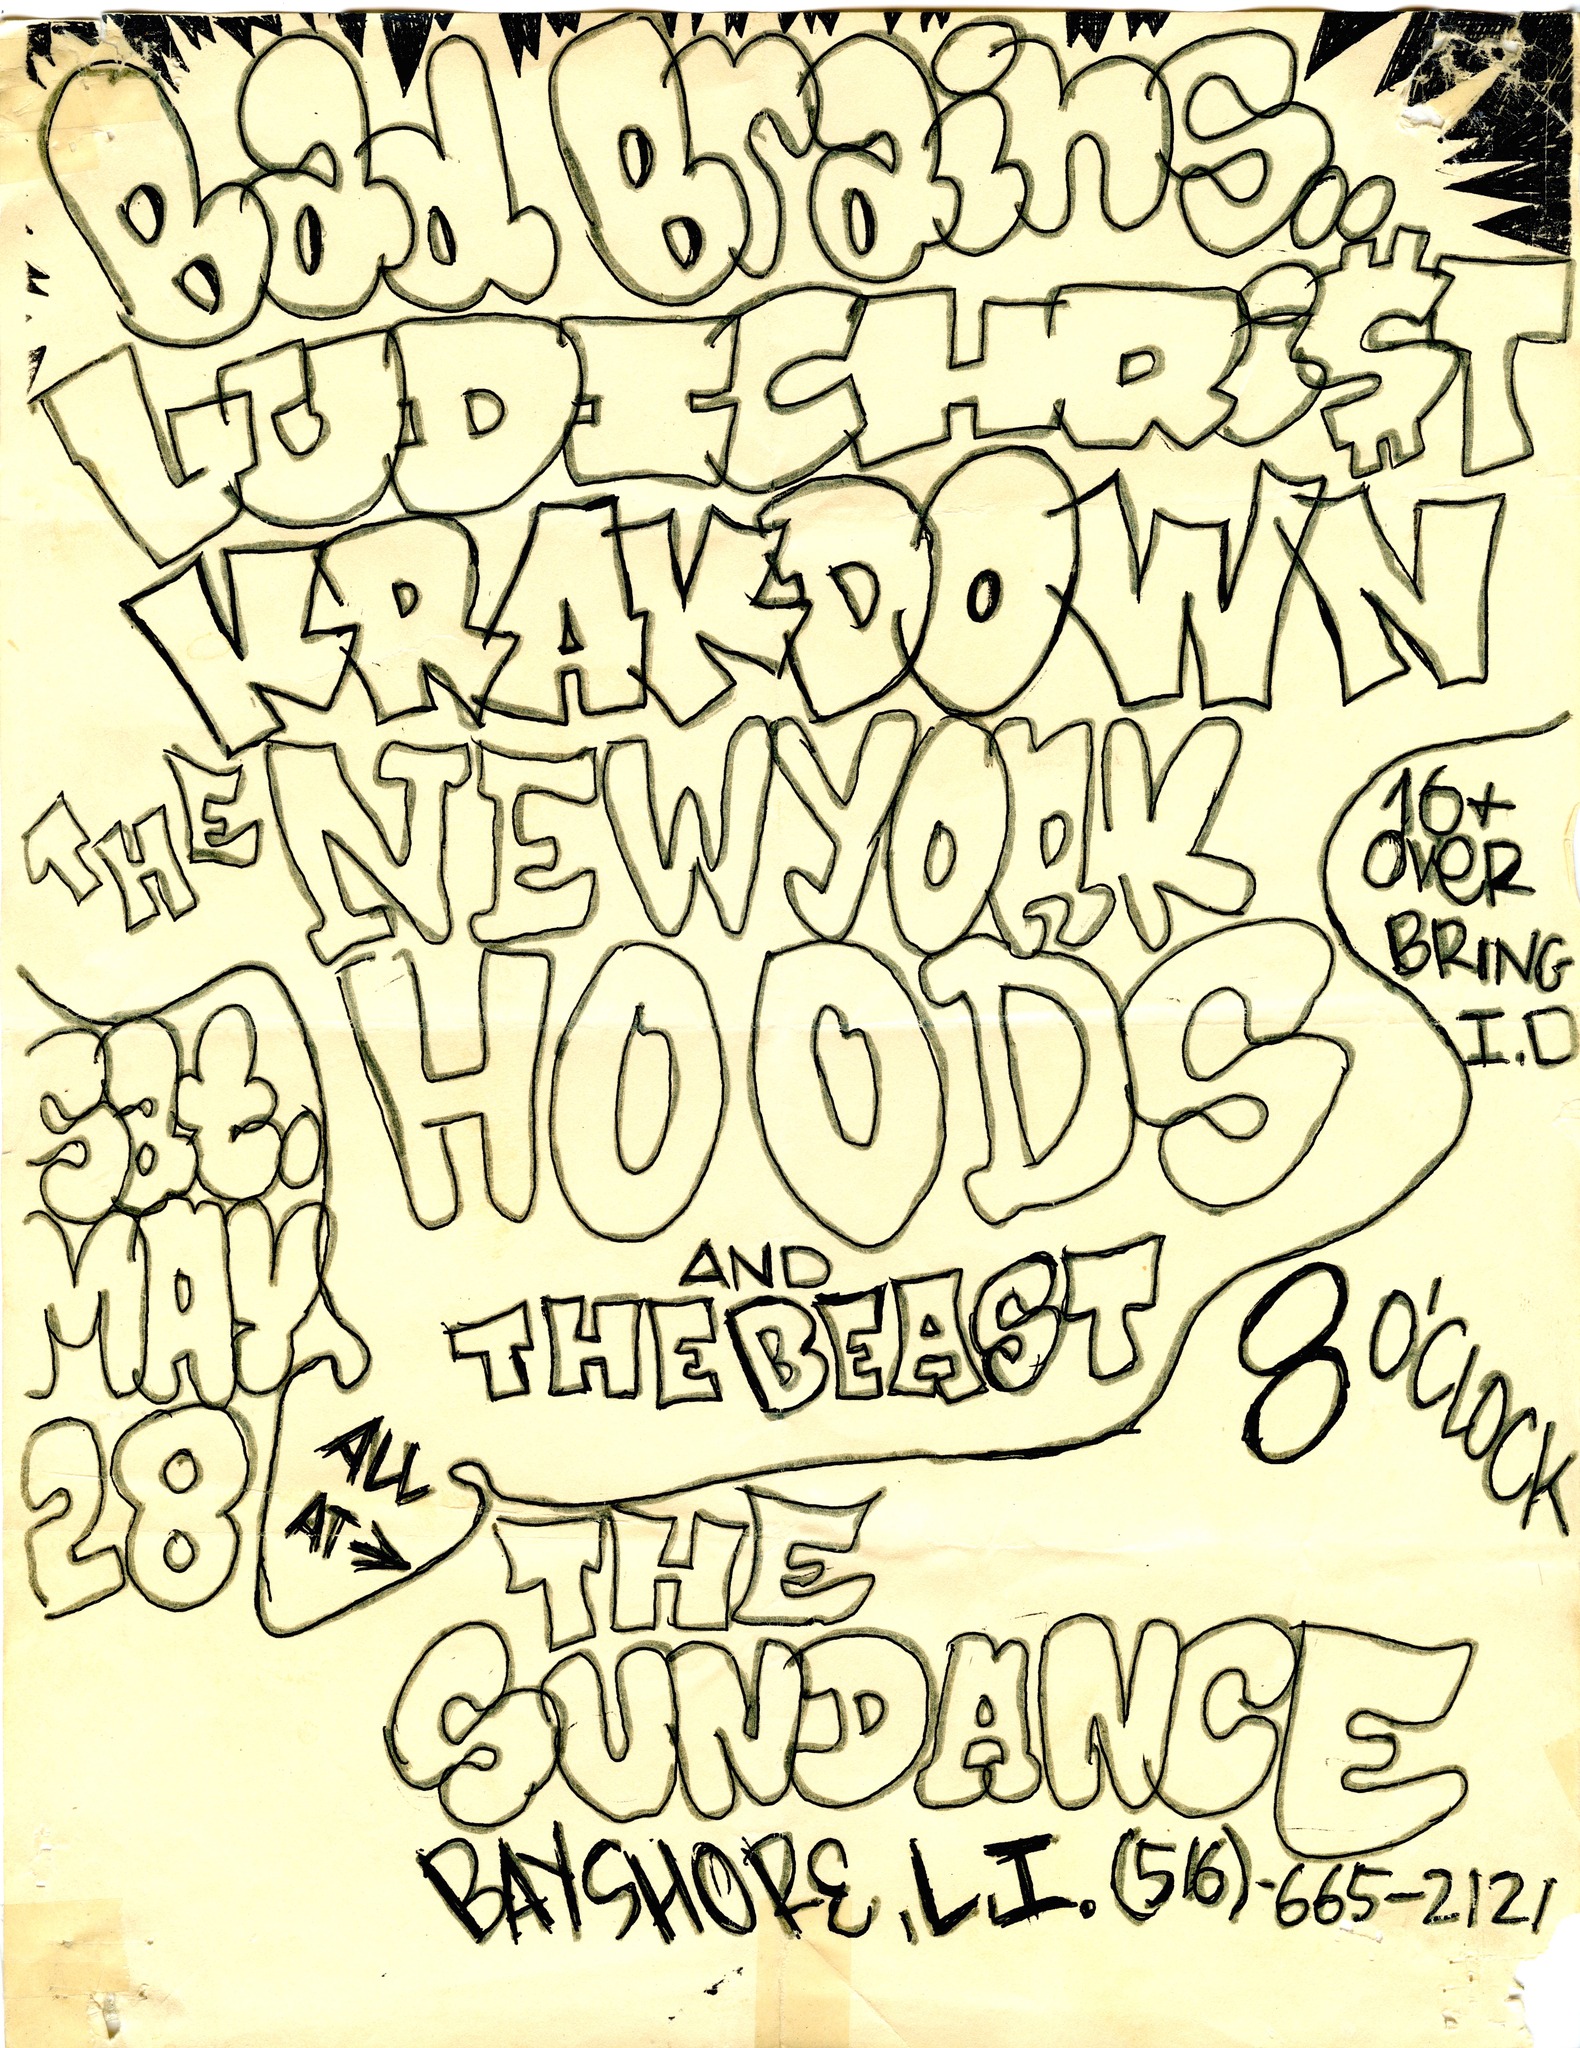 Bad Brains..
LUDICHRi$T
KRAKDOWN
THE NEW YORK
HOODS
16+
OVER
BRING
I.D
Sat.
MAY
28
AND
THE BEAST
8 O'CLOCK
ALL
AT
THE
SUNDANCE
BAYSHORE, L.I. (516)-665-2121